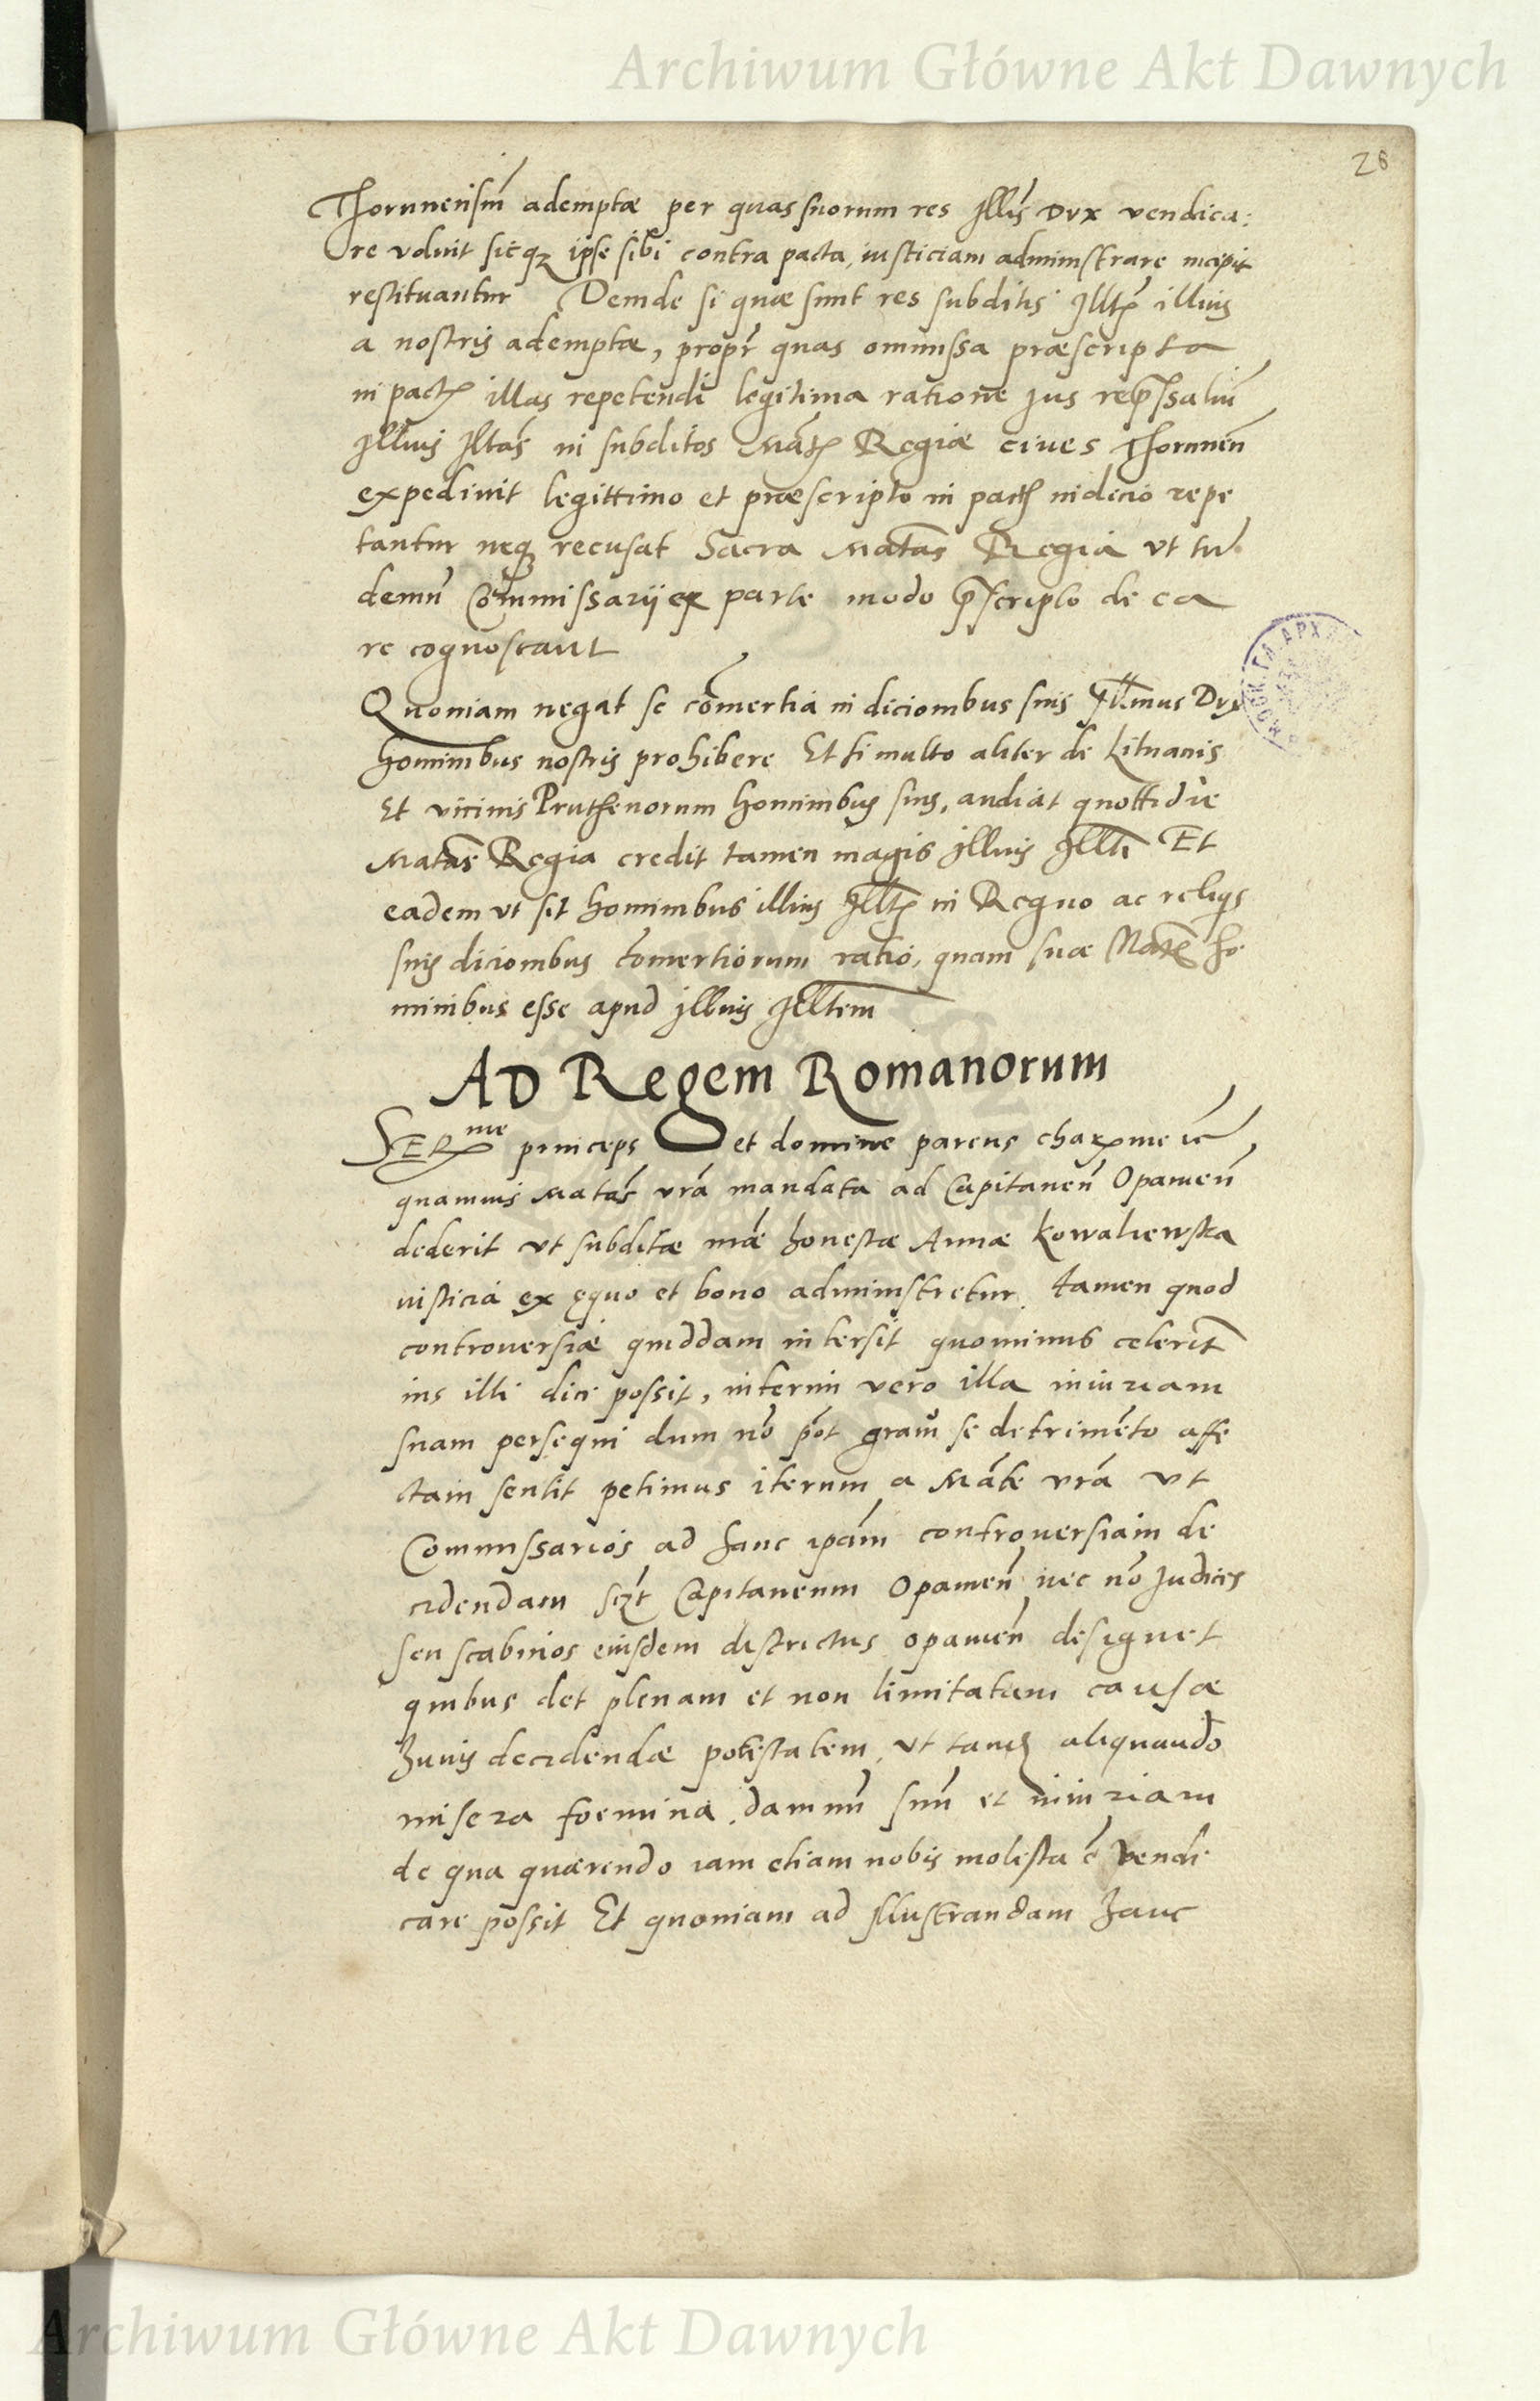 Archiwum Główne Akt Dawnych
26
Thorunensiū ademptæ per quas suorum res Illūs Dux vendica:
re voluit sicq3 ipse sibi contra pacta, iusticiam administrare incipit
restituantur Deinde si quæ sunt res subditis Illtis illius
a nostris ademptæ, proptr quas omnissa præscripta
in pactis illas repetendi legitima ratione Jus repssaliū
Illius Iltas in subditos Matis Regiæ ciues Thorunen
expediuit legittimo et præscripto in pactis iudicio repe
tantur neq3 recusat Sacra Matas Regia ut tu
demū Cōmmissarij ex parte modo pscripto de ea
re cognoscant
Quoniam negat se cōmertia in dicionibus suis Illmus Dux
hominibus nostris prohibere Et si multo aliter de Lituanis
Et vicinis Pruthenorum hominibus suis, audiat quottidie
Matas Regia credit tamen magis illius Illti Et
eadem ut sit hominibus illius Illtis in Regno ac reliqs
suis dicionibus cōmertiorum ratio, quam suæ Matis ho
minibus esse apud illius Illtem
AD Regem Romanorum
SERme princeps et domine parens charme ic̄
quamuis Matas vrā mandata ad Capitaneū Opauieñ
dederit ut subditæ mæ honestæ Annæ Kowaliewska
iusticia ex ęquo et bono administretur, tamen quod
controuersiæ quiddam intersit quominus celerit
ius illi dici possit, interim vero illa iniuriam
suam persequi dum nō pōt graui se detrimēto affe
ctam sentit petimus iterum a Māte vrā ut
Commissarios ad hanc ipām controuersiam de
cidendam sczt Capitaneum Opauieñ nec nō Judices
seu scabinos eiusdem districtus opauieñ designet
quibus det plenam et non limitatam causæ
huius decidendæ potestatem, ut tandē aliquando
misera foemina, damnū suū et iniuriam
de qua quærendo iam etiam nobis molesta ē vendi
care possit Et quoniam ad illustrandam hanc
Archiwum Główne Akt Dawnych